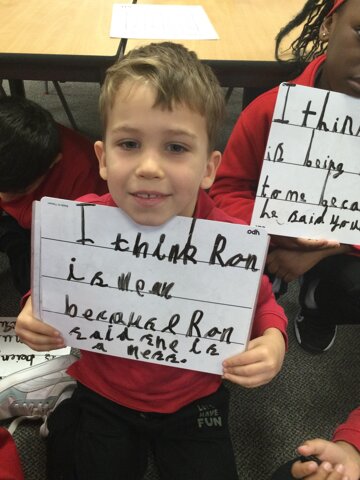 I think Ron
is mean
because Ron
said she is
a mess.
odh
I think
in being
to me beca
he said you
HAVE
FUN